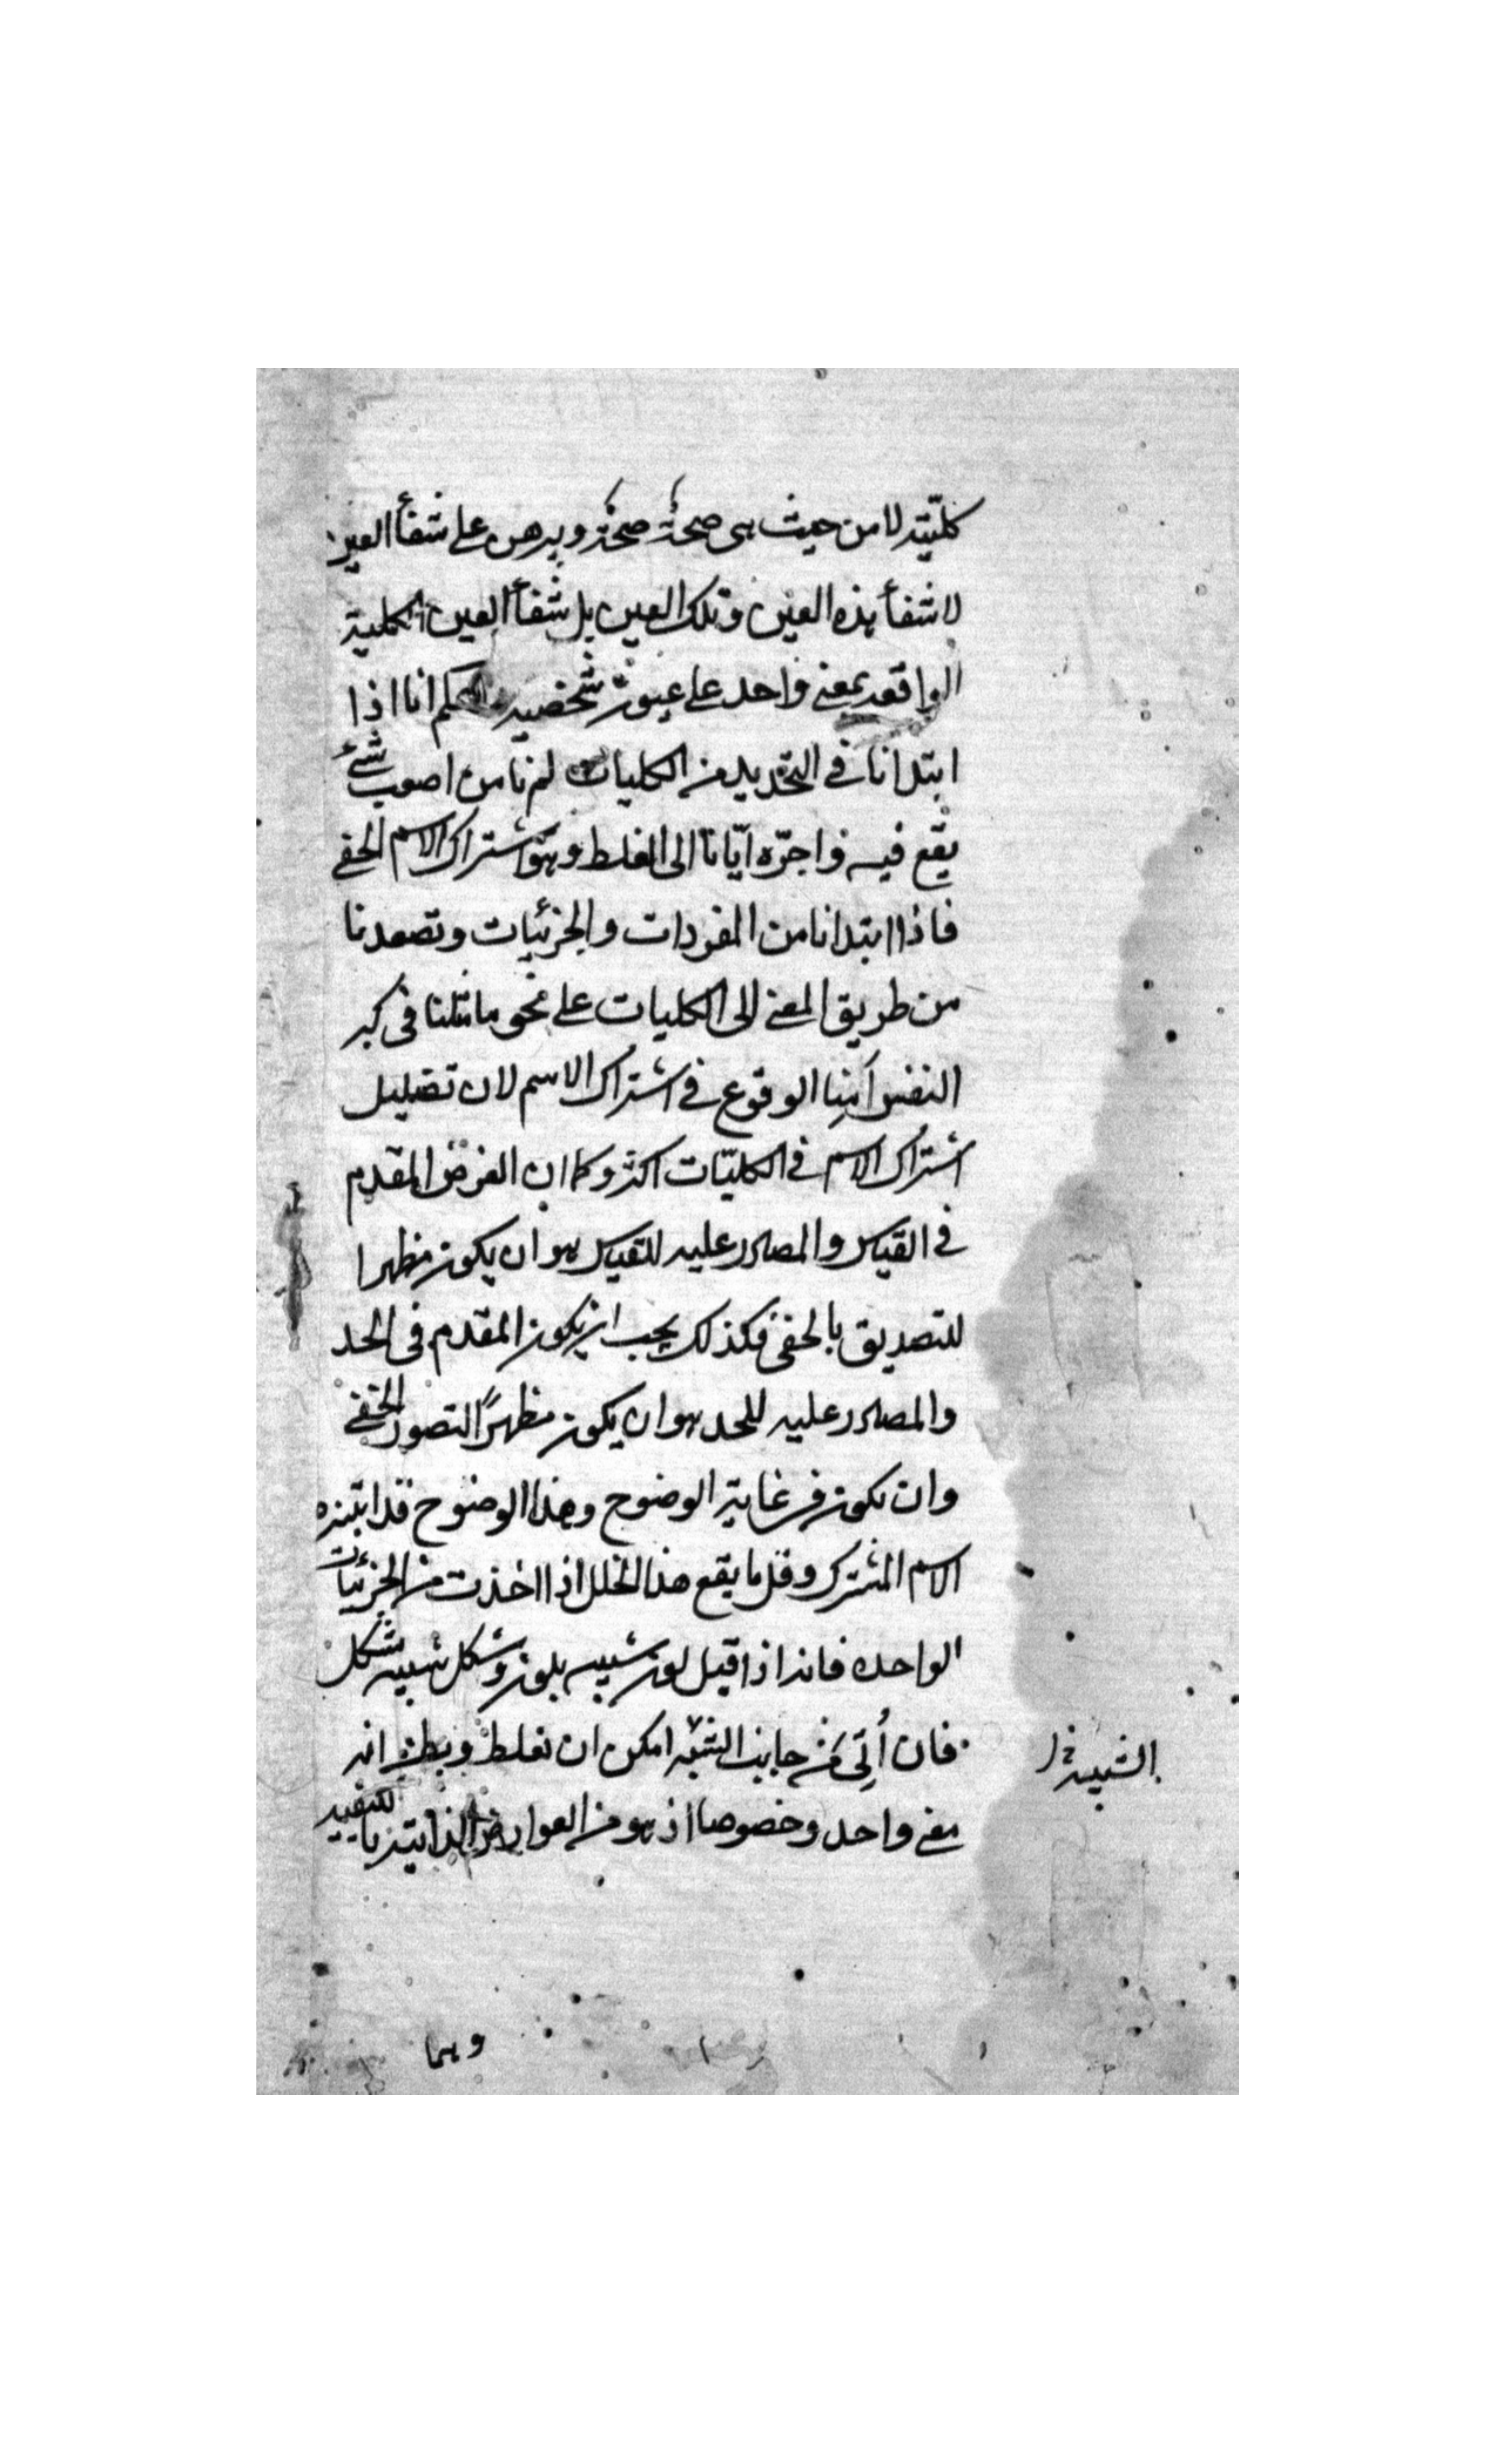 كليّة لا من حيث هى صحة صحة ويبرهن على شفأ العين
لا شفأ هذه العين وتلك العين بل شفأ العين الكلية
الواقعة بمعنى واحد على عيون شخصية واعلم انا اذا
ابتدانا فى التحديد من الكليات لم نامن اصوب شئ
يقع فيه واجرّه ايّانا الى الغلط وهو اشتراك الاسم الخفى
فاذا ابتدانا من المفردات والجزئيات وتصعدنا
من طريق المعنى الى الكليات على نحو ما مثلنا فى كبر
النفس اَمِنا الوقوع فى اشتراك الاسم لان تضليل
اشتراك الاسم فى الكليّات اكثر وكما ان الغرض المقدم
فى القياس والمصادر عليه للقياس هو ان يكون مظهرا
للتصديق بالخفى فكذلك يجب ان يكون المقدم فى الحد
والمصادر عليه للحد هو ان يكون مظهرًا لتصور الخفى
وان يكون فى غاية الوضوح وهذا الوضوح قد
الاسم المشترك وقل ما يقع هذا الخلل اذا اخذت من الجزئيات
الواحدة فانه اذا قيل لون شبيه بلون وشكل شبيه بشكل
فان أُتِى من جانب الشبه امكن ان نغلط ويظن انه
معنى واحد وخصوصا اذ هو من العوارض الذاتية بالكيفية
الشبيه خ
وهما